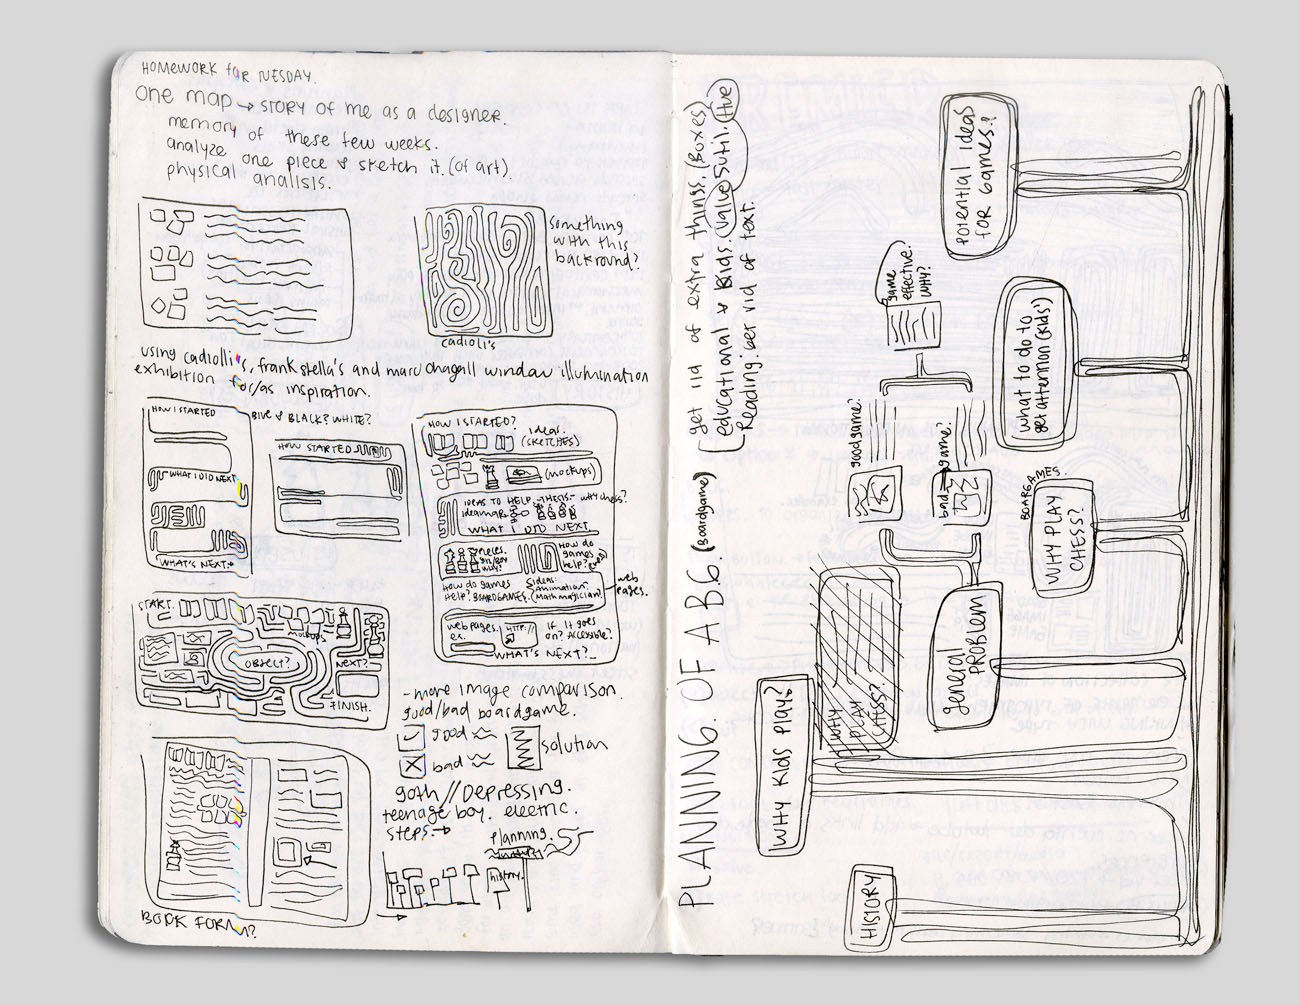 HOMEWORK for NESDAY.
One map → STORY OF me as a designer.
memory of these few weeks.
analyze one piece & sketch it. (of art).
physical analisis.
something
with this
backround?
cadioli's
using cadiolli's, frank stella's and marc chagall window illumination
exhibition for/as inspiration.
HOW I STARTED
WHAT I DID NEXT
WHAT'S NEXT.
BLUE & BLACK? WHITE?
HOW STARTED
HOW I STARTED?
ideas.
(SKETCHES)
(mockups)
IDEAS TO HELP -THESIS- why chess?
ideamap
WHAT I DID NEXT
How do
games
help?
How do games
Help? BOARDGAMES.
Ideas:
Animation.
(Mathmagician)
web
pages.
web pages.
ex.
HTTP://
If it goes
on? Accessible?
WHAT'S NEXT?
START.
mockups
OBJECT?
NEXT?
FINISH.
-more image comparison.
good/bad boardgame.
good
bad
solution
goth // Depressing.
teenage boy. electric.
steps. →
planning.
history.
BOOK FORM?
PLANNING OF A BG. (Boardgame)
get rid of extra things. (Boxes)
educational & Kids. Value Sutil. Hive
Reading. Get rid of text.
game
effective.
WHY?
good game?
bad game?
POTENTIAL IDEAS
FOR GAMES?
what to do to
get attention (Kids')
BOARGAMES.
WHY PLAY
CHESS?
General
PROBLEM
WHY
PLAY
CHESS?
WHY KIDS PLAY?
HISTORY